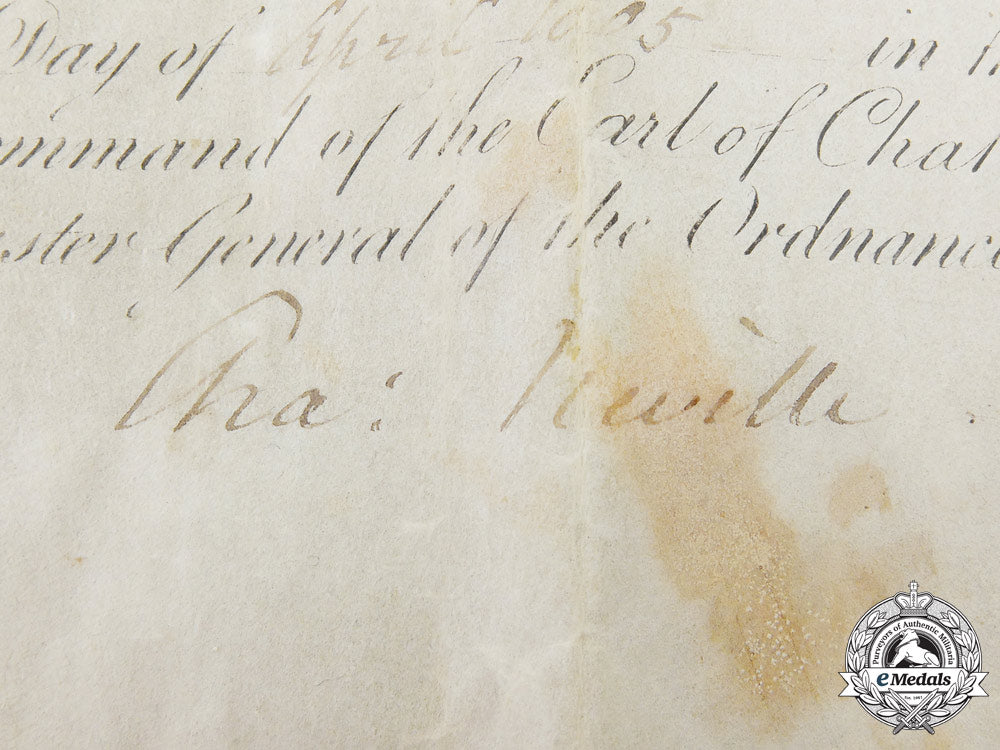 Day of April 1805 in
ommand of the Earl of Chat
ster General of the Ordnance
Chas: Neville
Purveyors of Authentic Militaria
eMedals